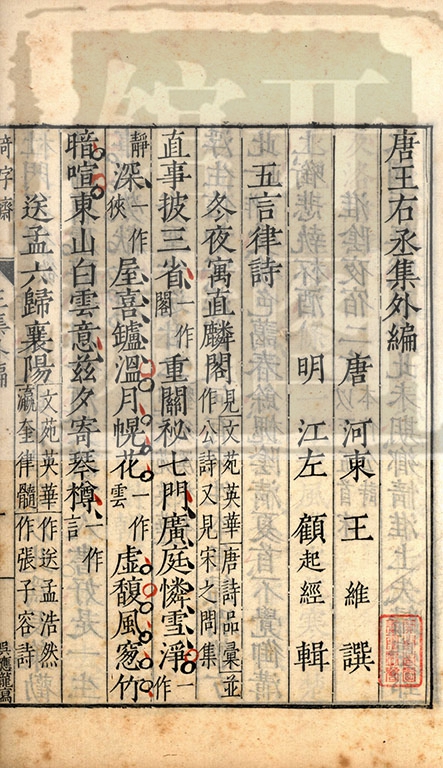 唐王右丞集外編
唐 河東 王 維 譔
明 江左 顧起經 輯
五言律詩
冬夜寓直麟閣見文苑英華唐詩品彙並作公詩又見宋之問集
直事披三省一作閣重關秘七門廣庭憐雪淨一作
靜深一作俠屋喜鑪溫月幌花一作雲虛馥風窓竹
暗喧東山白雲意茲夕寄琴樽一作言
送孟六歸襄陽文苑英華作送孟浩然瀛奎律髓作張子容詩
奇字齋
吳應龍寫